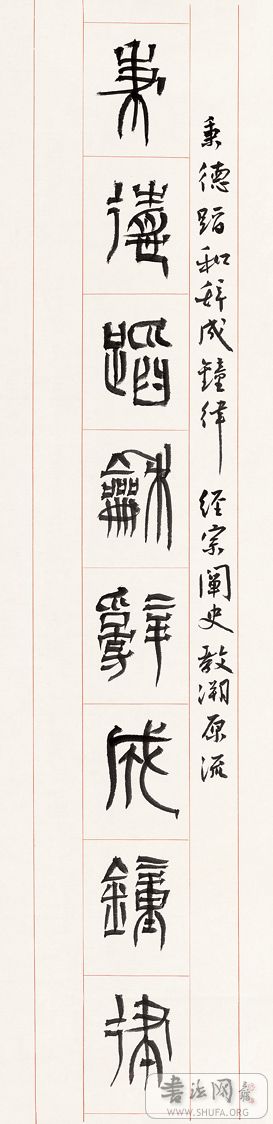 秉德蹈和辞成鐘律 经宗阐史教溯原流
秉德蹈龢辭成鐘律
书法网
WWW.SHUFA.ORG